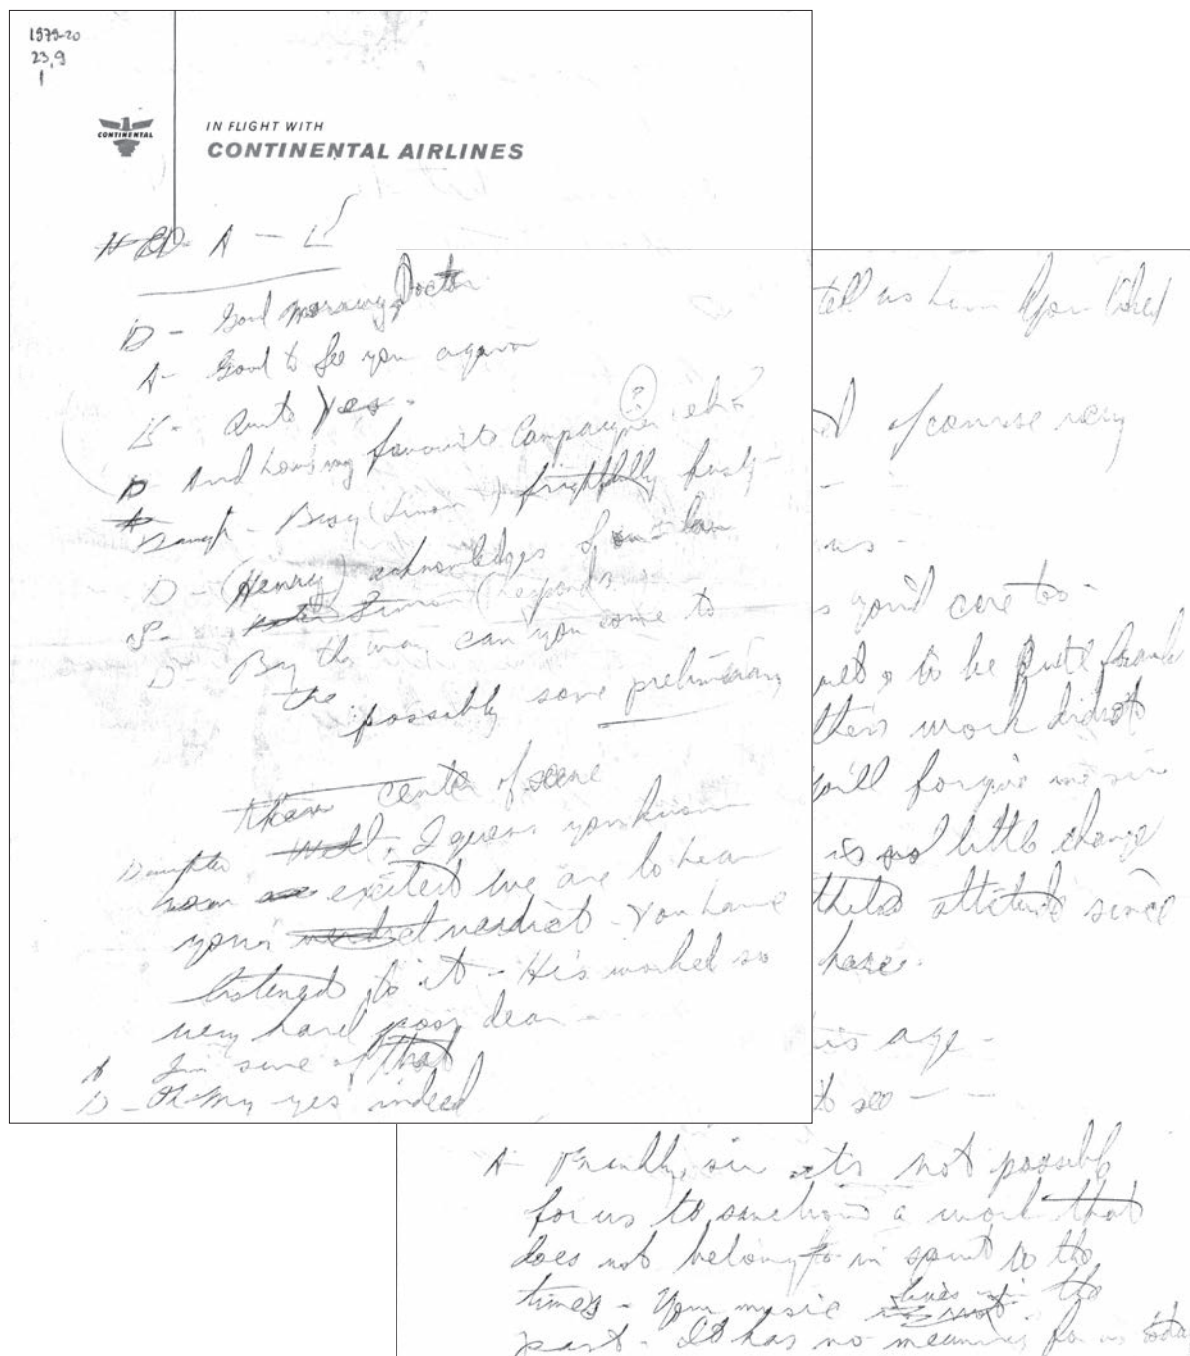 1979-20
23,9
1
CONTINENTAL
IN FLIGHT WITH
CONTINENTAL AIRLINES
A - L
D - Good Morning Doctor
A - Good to see you again
L - Quite Yes -
D And how's my favourite Campaigner eh?
?
Daugh - Busy (Simon) frightfully busy -
D - (Henry) acknowledges
S - Simon (responds
D - By the way can you come to
the possibly some preliminary
center of scene
Daughter Well, I guess you know
how excited we are to hear
your verdict - You have
listened to it - He's worked so
very hard poor dear -
A I'm sure of that
D - Oh my yes indeed
tell us how you liked
of course very
us -
you'd care to -
to be quite frank
work did not
you'll forgive me sir
is no little change
attitude since
here.
his age -
to see - -
A - Frankly, sir its not possible
for us to sanction a work that
does not belong in spirit to the
times - Your music lives in the
past - It has no meaning for us today